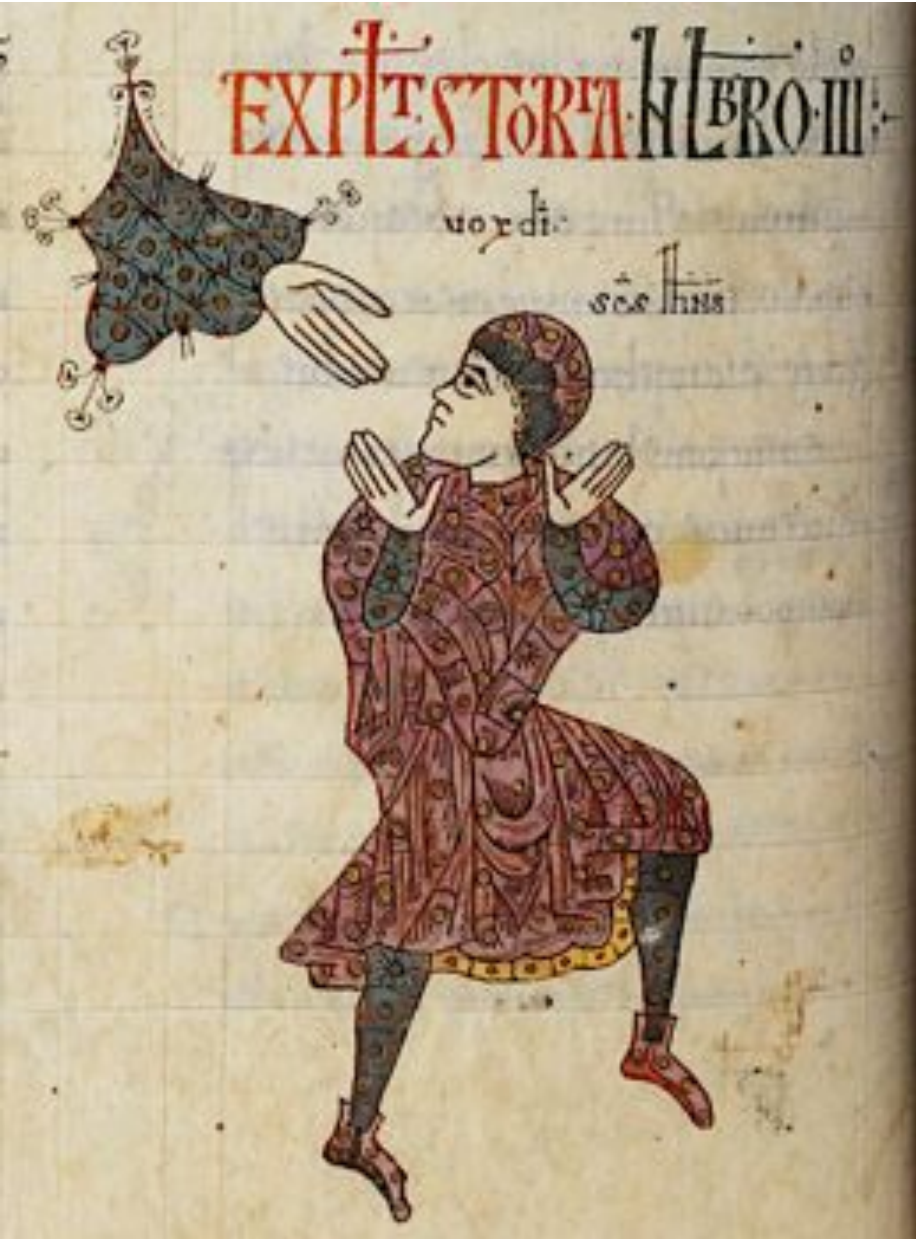 EXPLT STORIA IN LBRO III o
vox dni
scs Ihns